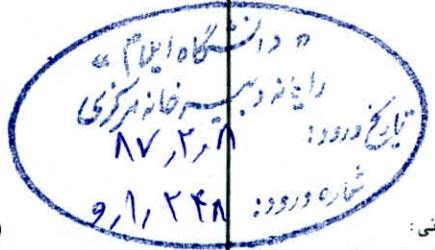 « دانشگاه ایلام »
رایانه دبیرخانه مرکزی
تاریخ ورود: ۸۷٫۲٫۸
شماره ورود: ۹٫۱٫۲۴۸
نی: